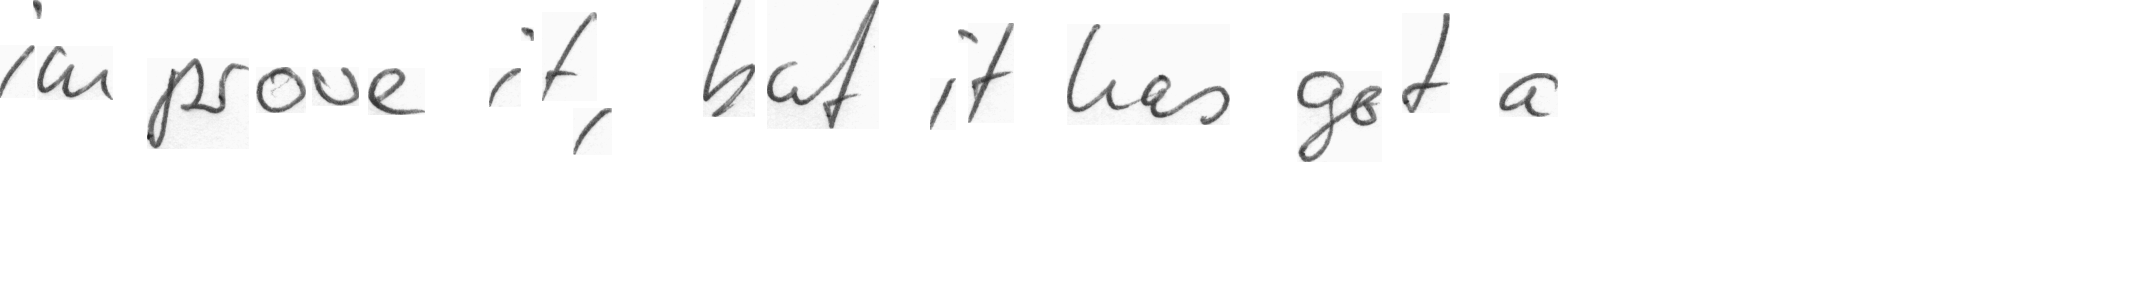 improve it, but it has got a